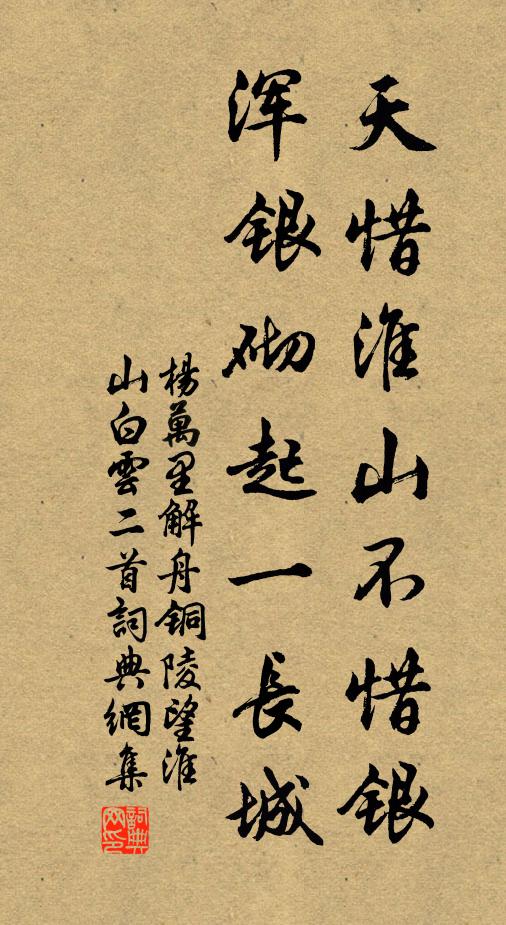 天惜淮山不惜银
浑银砌起一長城
楊萬里解舟铜陵望淮
山白雲二首詞典網集
詞典
网印